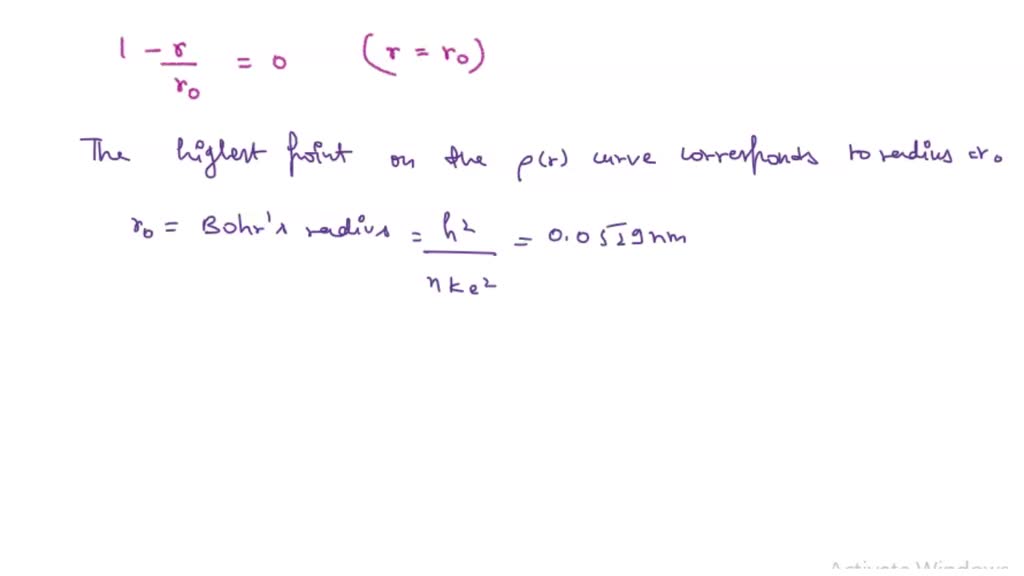 1 - r/r₀ = 0 (r = r₀)
The highest point on the ρ(r) curve corresponds to radius = r₀
r₀ = Bohr's radius = h²/nke² = 0.0529 nm
Activate Windows